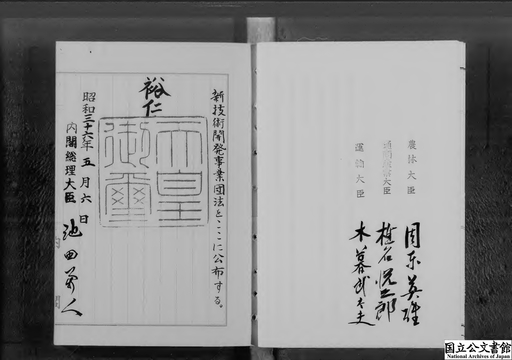 新技術開発事業団法をここに公布する。
裕仁
天皇御璽
昭和三十六年五月六日
内閣総理大臣 池田勇人
農林大臣 周東英雄
通商産業大臣 椎名悦三郎
運輸大臣 木暮武太夫
国立公文書館
National Archives of Japan